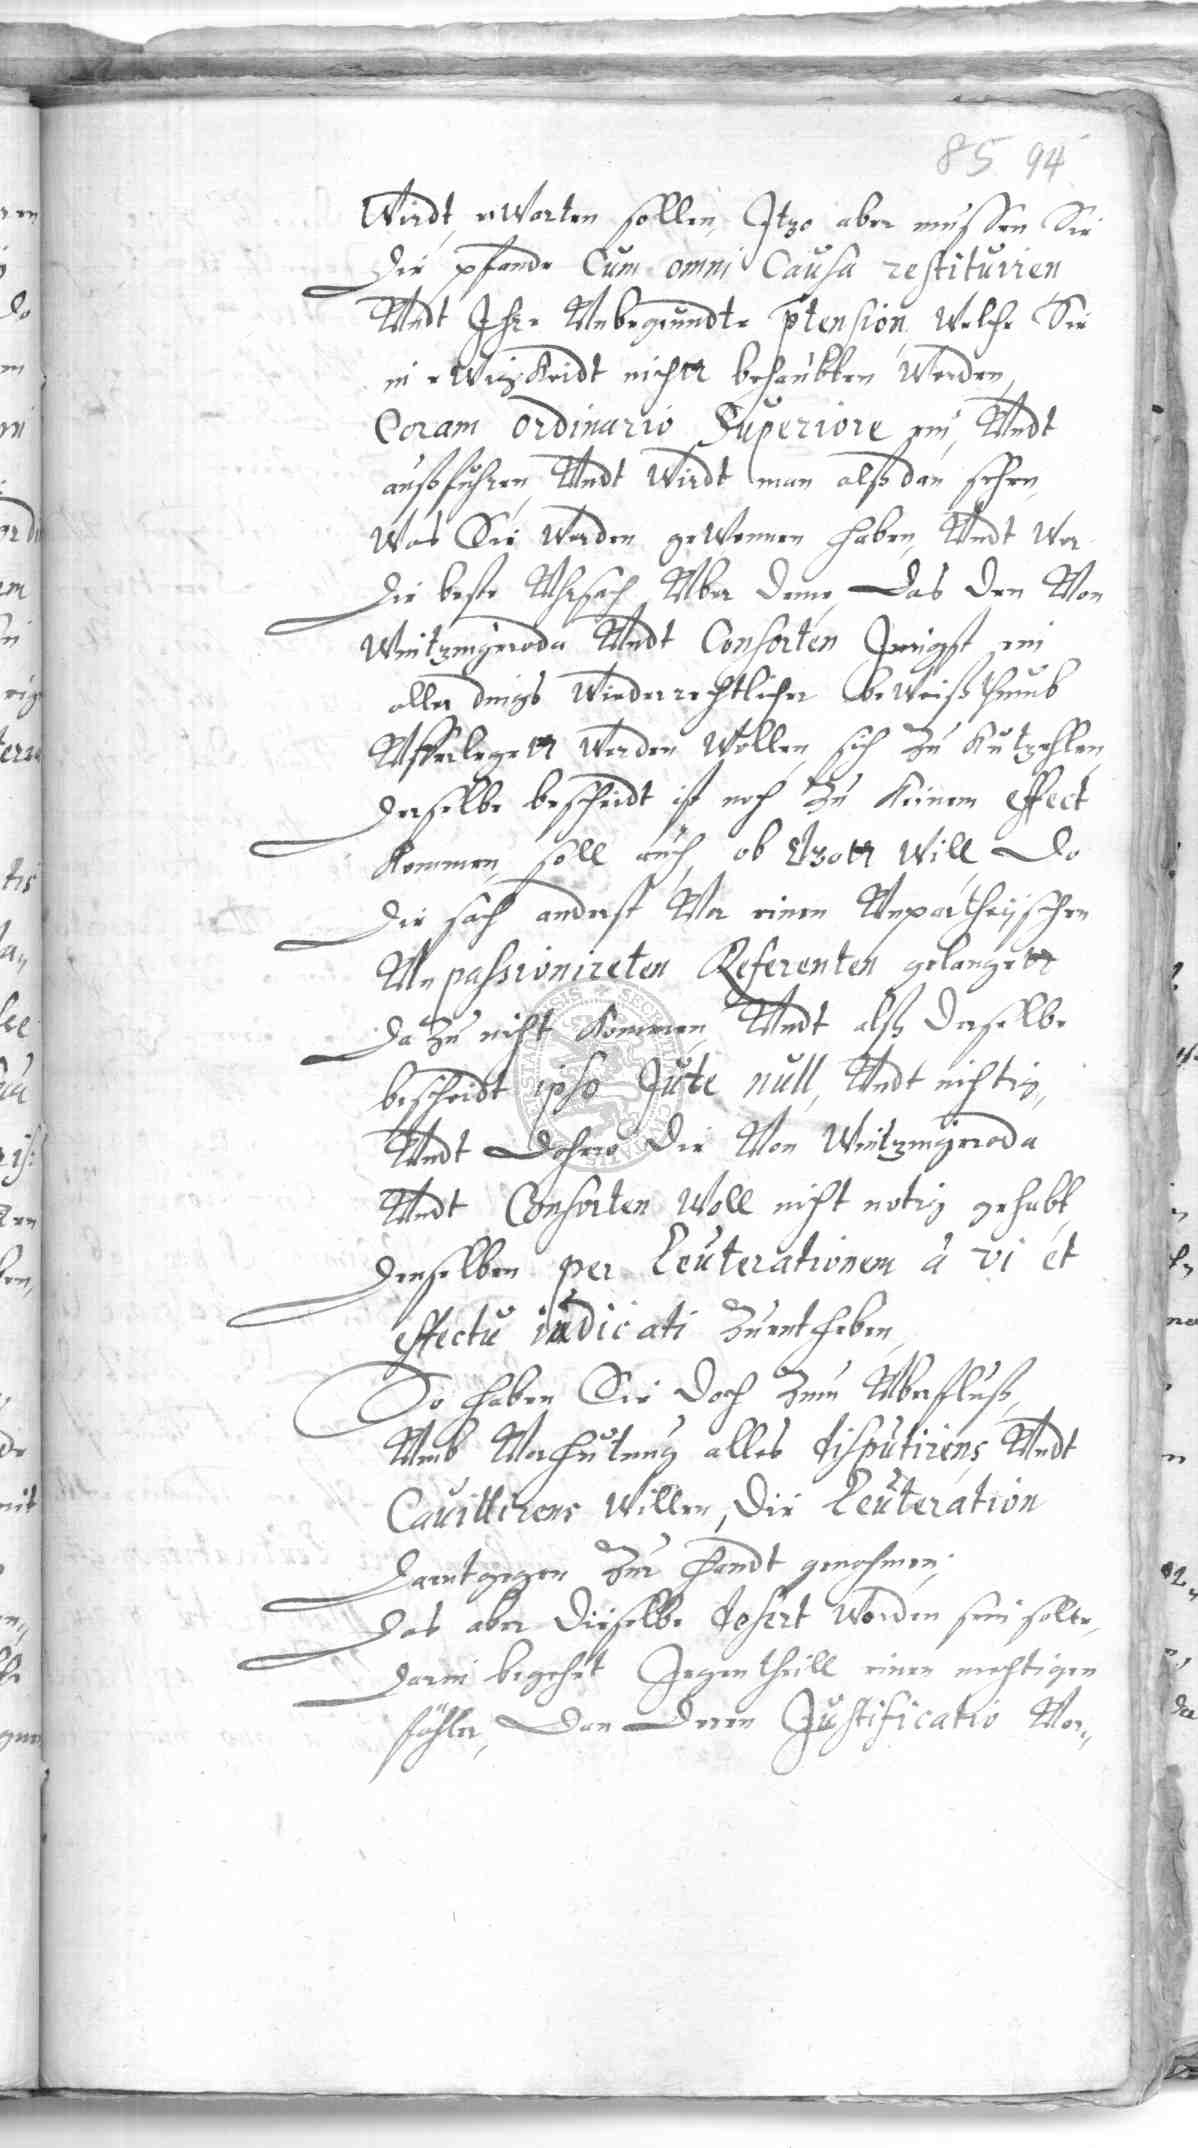 85 94
Wirdt, erWarten sollen, Itzo aber mussen Sie
die pfande Cum omni Causa restituiren
Undt Ihre Unbegrundte ptension, Welche Sie
in eWigKeidt nicht behaubten Werden,
Coram ordinario Superiore ein, Undt
außfuhren, Undt Wirdt man alßdan sehen,
Was Sie Werden geWonnen haben, Undt Wer
die beste Uhrsach, Uber deme, Das den Von
Wintzingeroda Undt Consorten Jungst ein
aller dings Wiederrechtlicher beWeißthumb
Ufferleget Werden Wollen, sich zu
derselbe bescheidt ist noch zu Keinem effect
Kommen, soll auch, ob Gott Will, Do
die sach anderst Vor einen Unpartheyschen
Unpassionireten Referenten gelanget
dazu nicht Kommen, Undt alß derselbe
bescheidt ipso Jure null, Undt nichtig,
Undt Dahero die Von Wintzingeroda
Undt Consorten Woll nicht notig gehabt,
denselben per Leuterationem à vi et
effectu iudicati zuentheben,
So haben Sie doch zum Uberfluß,
Umb Verhutung alles disputirens Undt
Cavillirens Willen, die Leuteration
darentgegen Zur Handt genohmen;
das aber dieselbe desert Worden sein solte,
darin begehet Jegentheill einen mechtigen
fähler, Dan Deren Justificatio Vor,,